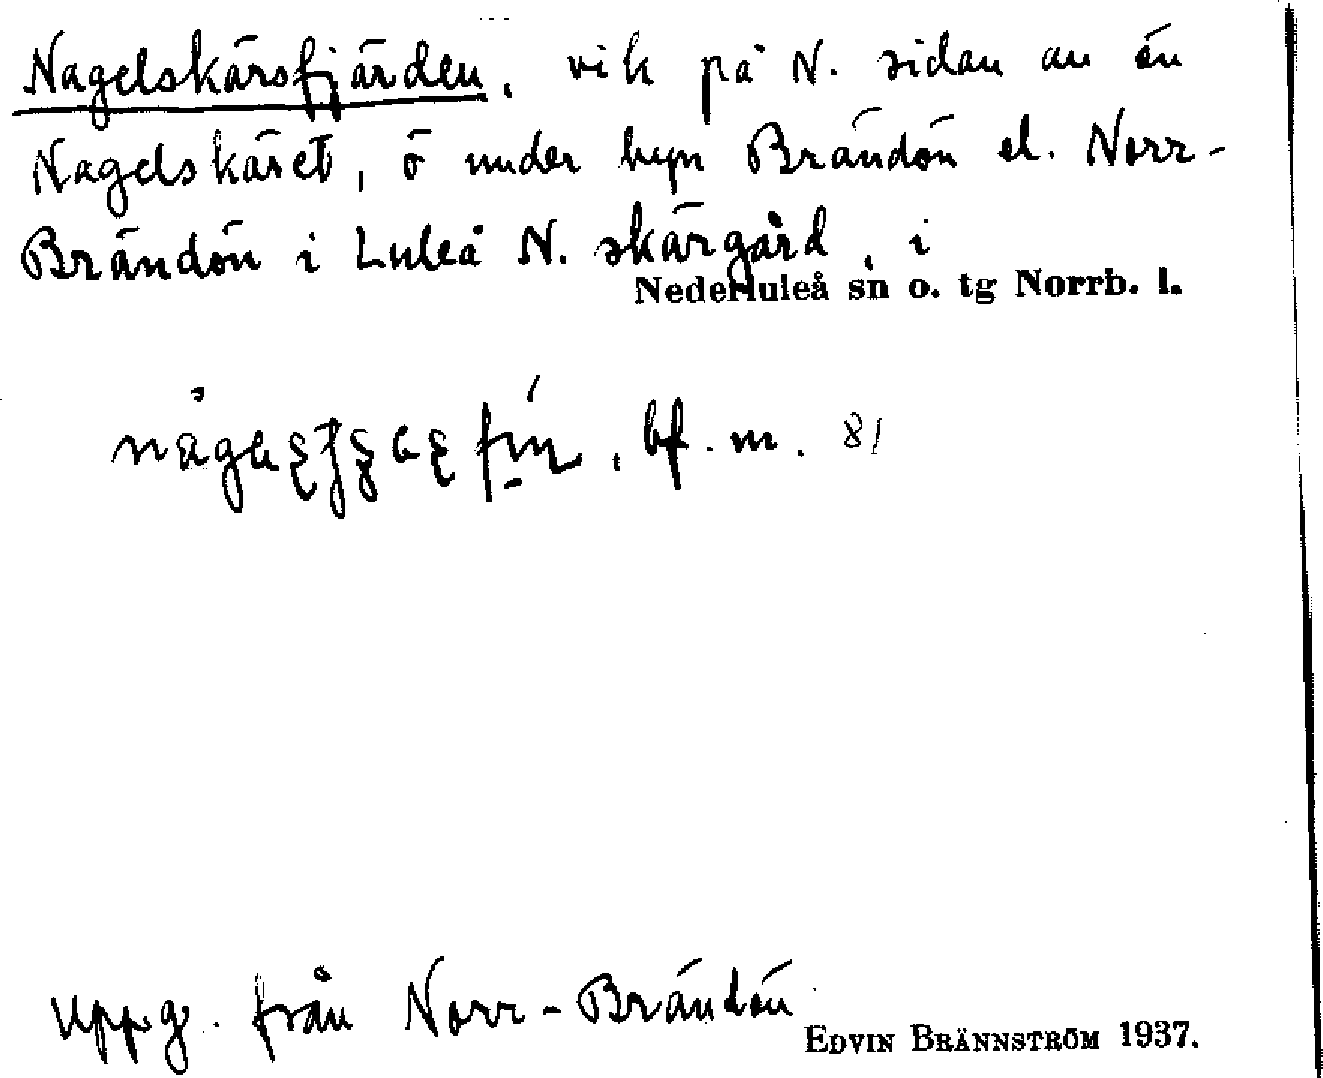 Nagelskärsfjärden, vik på N. sidan av ön
Nagelskäret, ö under byn Brändön el. Norr-
Brändön i Luleå N. skärgård, i
Nederluleå sn o. tg Norrb. l.
bf. m. 81
Uppg. från Norr-Brändön
EDVIN BRÄNNSTRÖM 1937.